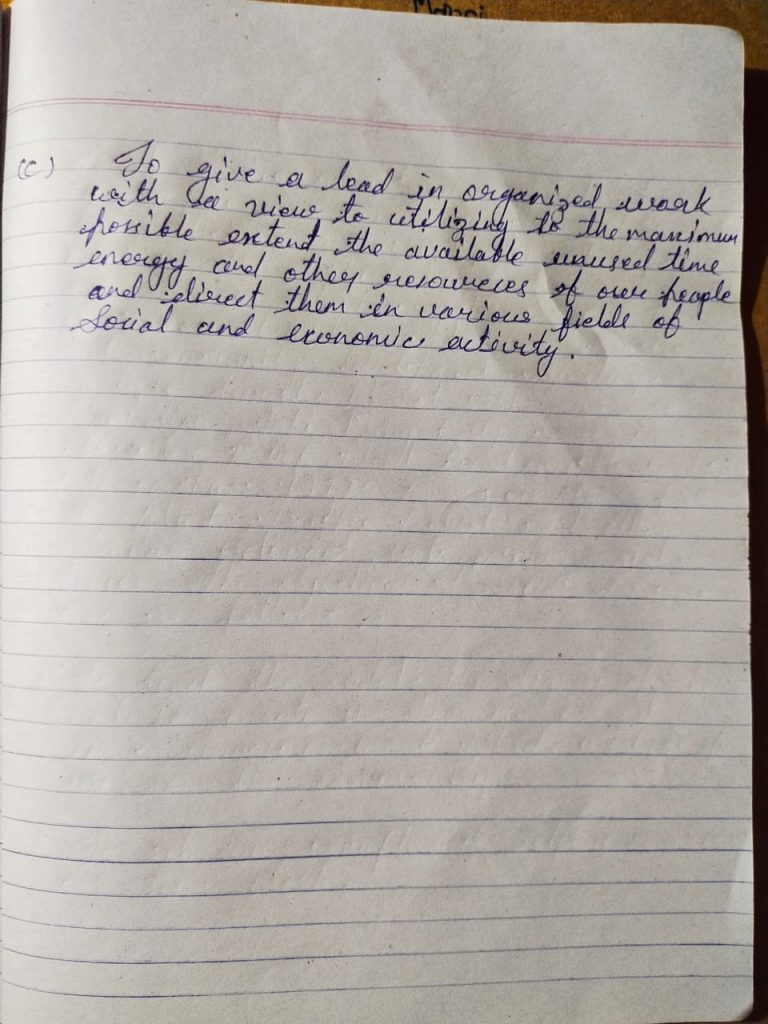 (C) To give a lead in organized work
with a view to utilizing to the maximum
possible extend the available unused time
energy and other resources of our people
and direct them in various fields of
Social and economic activity.